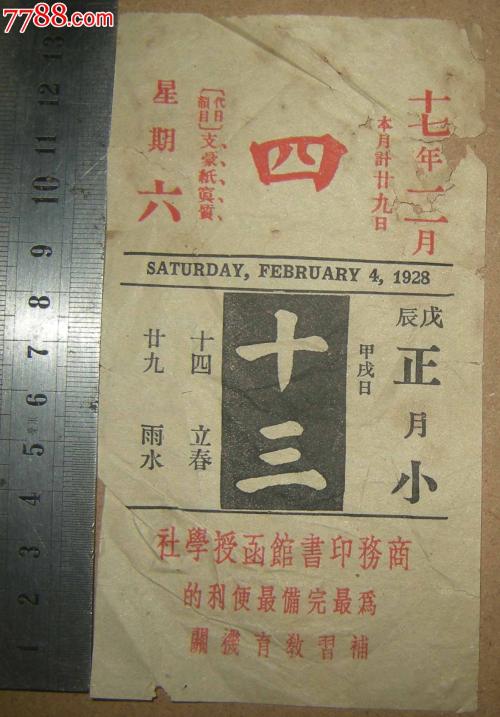 7788.com
十七年二月
本月計廿九日
四
〔代日韻目〕支、豪、紙、寘、質、
星期六
SATURDAY, FEBRUARY 4, 1928
戊辰
正月小
甲戌日
十三
十四 立春
廿九 雨水
商務印書館函授學社
爲最完備最便利的
補習教育機關
1 2 3 4 5 6 7 8 9 10 11 12 13